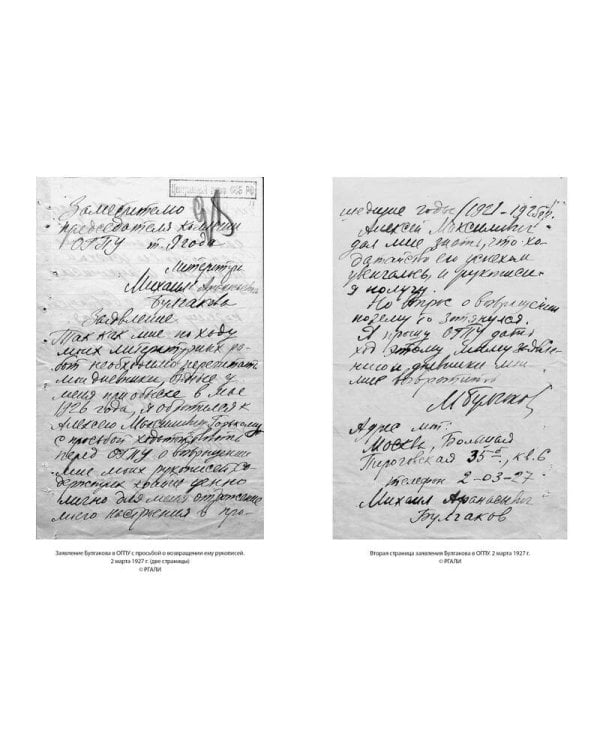 Центральный архив ФСБ РФ
Заместителю
председателя коллегии
ОГПУ т. Ягода
литератора
Михаила Афанасьевича
Булгакова
Заявление
Так как мне по ходу
моих литературных ра-
бот необходимо перечитать
мои дневники, взятые у
меня при обыске в мае
1926 года, я обратился к
Алексею Максимовичу Горькому
с просьбой ходатайствовать
перед ОГПУ о возвращении
мне моих рукописей, со-
держащих крайне ценно
лично для меня отражение
моего настроения в про-
Заявление Булгакова в ОГПУ с просьбой о возвращении ему рукописей.
2 марта 1927 г. (две страницы)
© РГАЛИ
шедшие годы (1921-1925гг).
Алексей Максимович
дал мне знать, что хо-
датайство его успехом
увенчалось, и рукописи
я получу.
Но вопрос о возвращении
почему то затянулся.
Я прошу ОГПУ дать
ход этому моему заявле-
нию и дневники мои
мне возвратить
М Булгаков
Адрес
Москва, Большая
Пироговская 35а, кв. 6
телефон 2-03-27
Михаил Афанасьевич
Булгаков
Вторая страница заявления Булгакова в ОГПУ. 2 марта 1927 г.
© РГАЛИ